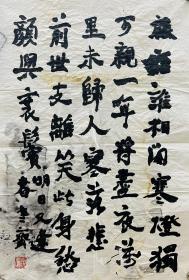 旅館誰相問寒燈獨
可親一年將盡夜萬
里未歸人寥落悲
前世支離笑此身愁
顏與衰鬢明日又逢
春